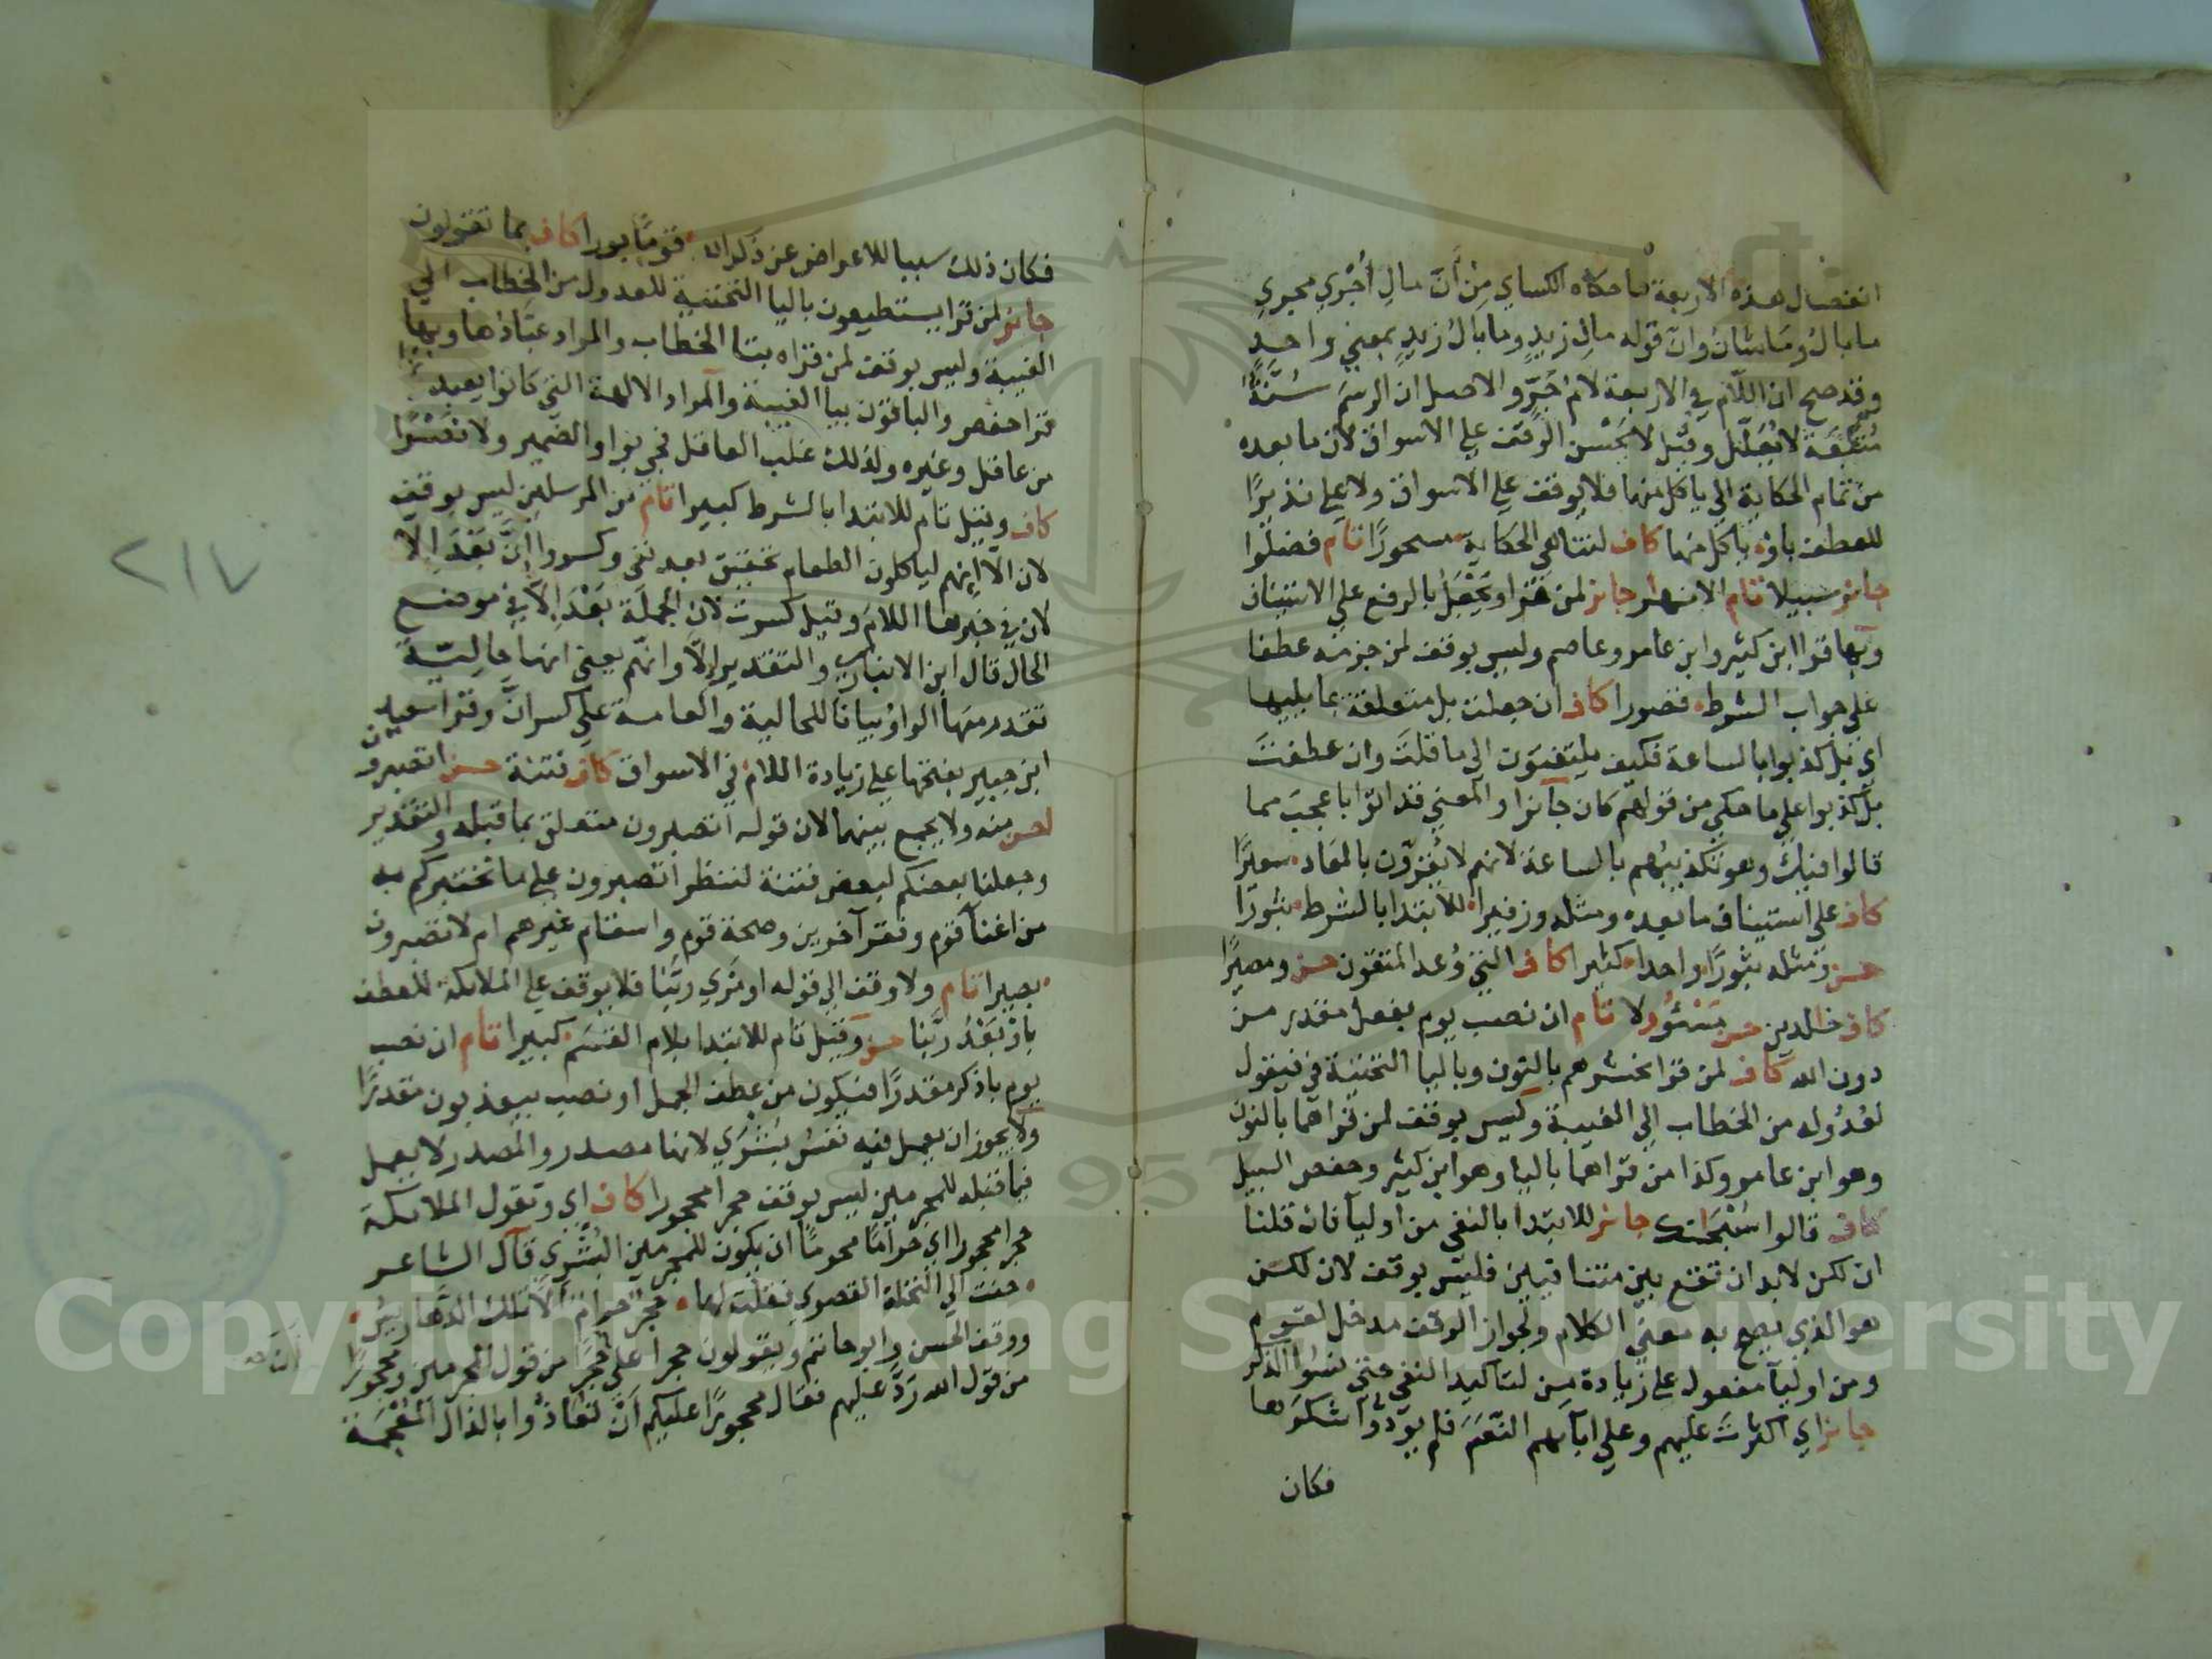 انفصال هذه الاربعة ما حكاه الكساي مِنْ أَنَّ مالِ أُجْرِي مجرى
ما بالُ ومَا شانُ وانّ قوله مالِ زيدٍ وما بالُ زيدٍ بمعنى واحدٍ
وقد صح ان اللّام في الاربعة لام جَرٍّ والاصل ان الرسمَ سُنَّةٌ
مُتَّبَعَة لا يُعَلَّل وقيل لا يَحْسُن الوقف على الاسواق لان ما بعده
من تمام الحكاية الى ياكل منها فلا يوقف على الاسواق ولا على نذيرًا
للعطف باوْ ياكل منها كاف لتناهي الحكاية مسحورًا تام فضلّوا
جائز سبيلا تام الانهار جائز لمن قرا ويَجْعَلُ بالرفع على الاستيناف
وبها قرا ابن كثير وابن عامر وعاصم وليس بوقف لمن جزمه عطفا
على جواب الشرط قصورا كاف ان جعلت بل متعلقة بما يليها
اي بل كذبوا بالساعة فكيف يلتفتون الى ما قلتَ وان عطفتَ
بل كذبوا على ما حكي من قولهم كان جائزا والمعنى قد اتوا باعجب مما
قالوا فيك وهو تكذيبهم بالساعة لانهم لا يُقِرّون بالمعَاد سعيرًا
كاف على استيناف ما بعده ومثله وزفيرا للابتدا بالشرط ثبورًا
حسن ومثله ثبورًا واحدا كثيرا كاف التي وُعد المتقون حسن ومصيرًا
كاف خالدين حسن مَسْئُولا تام ان نصب يوم بفعل مقدر من
دون الله كاف لمن قرا نحشرهم بالنون وباليا التحتية في فيقول
لعُدُوله من الخطاب الى الغيبة وليس بوقف لمن قراهما بالنون
وهو ابن عامر وكذا من قراهما باليا وهو ابن كثير وحفص السبيل
كاف قالوا سُبْحَانك جائز للابتدا بالنفي من اولياَ فان قلنا
ان لكن لابد ان تقع بين متنافيين فليس بوقف لان لكن
هو الذي يصح به معنى الكلام ولجواز الوقف مدخل لقوم
ومن اولياَ مفعول على زيادة مِن لتاكيد النفي حتى نسُوا الذكر
جائز اي اكثرتَ عليهم وعلى ابآئهم النّعَمَ فلم يودّوا شكرَها
فكان
فكان ذلك سببا للاعراض عن ذكر الله قومًا بورا كاف بما تقولون
جائز لمن قرا يستطيعون باليا التحتية للعدول من الخطاب الى
الغيبة وليس بوقف لمن قراه بتا الخطاب والمراد عبّادُها وبها
قرا حفص والباقون بيا الغيبة والمراد الالهة التي كانوا يعبدونها
من عاقل وغيره ولذلك غلب العاقل فجي بواو الضمير ولا نَصْرًا
كاف وقيل تام للابتدا بالشرط كبيرا تام من المرسلين ليس بوقف
لان الّا انهم لياكلون الطعام تحقيق بعد نفي وكسروا إِنَّ بَعْدَ إِلّا
لان في خبرها اللامَ وقيل كسرت لان الجملة بَعْدَ إِلّا في موضع
الحال قال ابن الانباري والتقدير إلّا وانّهم يعني انها حاليّة
تقدر معها الواو بيانا للحالية والعامة على كسر انَّ وقرا سعيد
ابن جبير بفتحها على زيادة اللام في الاسواق كاف فتنة حسن اتصبرون
احسن منه ولا يجمع بينهما لان قوله اتصبرون متعلق بما قبله والتقدير
وجعلنا بعضكم لبعض فتنة لننظر اتصبرون على ما نختبركم به
من اغناَ قوم وفقر آخرين وصحة قوم واسقام غيرهم ام لا تصبرون
بصيرا تام ولا وقف الى قوله او نَرَي ربَّنا فلا يوقف على الملائكة للعطف
باوْ بَعْدُ ربَّنا حسن وقيل تام للابتدا بلام القسَم كبيرا تام ان نصب
يوم باذكر مقدرًا فيكون من عطف الجمل او نصب بيعذبون مقدرًا
ولا يجوز ان يعمل فيه نفسُ بُشْرَي لانها مصدر والمصدر لا يعمل
فيما قبله للمجرمين ليس بوقف حجرا محجورا كاف اي وتقول الملائكة
حجرا محجورا اي حرامًا محرمًا ان يكون للمجرمين البُشْرَي قال الشاعر
حنت الى النخلة القصوى فقلت لها حجرٌ حرامٌ ألا تلك الدَّهاريسُ
ووقف الحسن وابو حاتم ويقولون حجرا على أنَّ حِجْرًا من قول المجرمين ومحجورًا
من قول الله رَدَّ عليهم فقال محجورًا عليكم أنْ تعَاذُوا بالذال المُعْجَمَة
أنَّ صح
٢١٧
Copyright © King Saud University